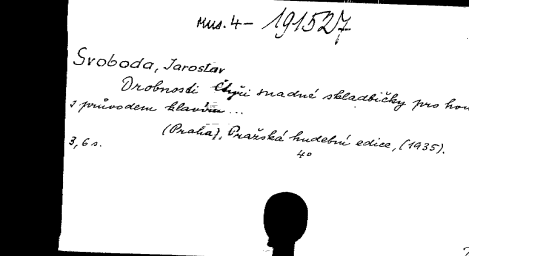 Mus. 4 - 191527
Svoboda, Jaroslav
Drobnosti Čtyři snadné skladbičky pro hou
s průvodem klavíru ...
(Praha), Pražská hudební edice, (1935).
3, 6 s. 4°